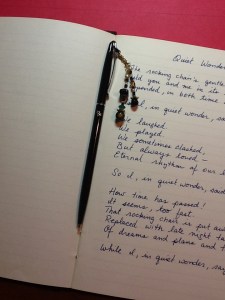 Quiet Wonder
The rocking chair's gentle
Held you and me in its
Suspended, in both time
So I, in quiet wonder, said
We laughed.
We played.
We sometimes clashed,
But always loved –
Eternal rhythm of our
So I, in quiet wonder, said
How time has passed!
It seems, too fast.
That rocking chair is put
Replaced with late night
Of dreams and plans and
While I, in quiet wonder, say